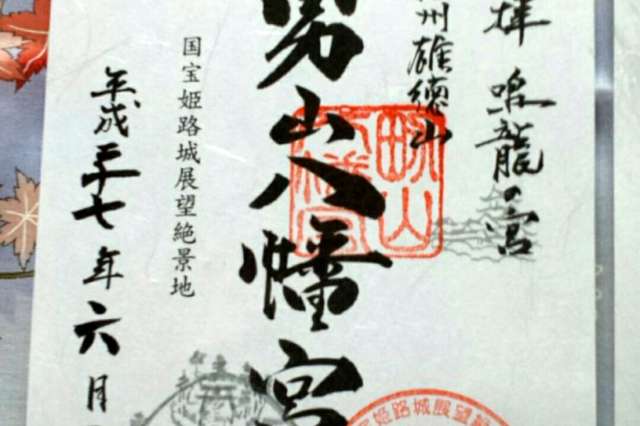 拝 鳴龍の宮
州雄徳山
男山八幡宮
国宝姫路城展望絶景地
平成二十七年六月
姫路城展望